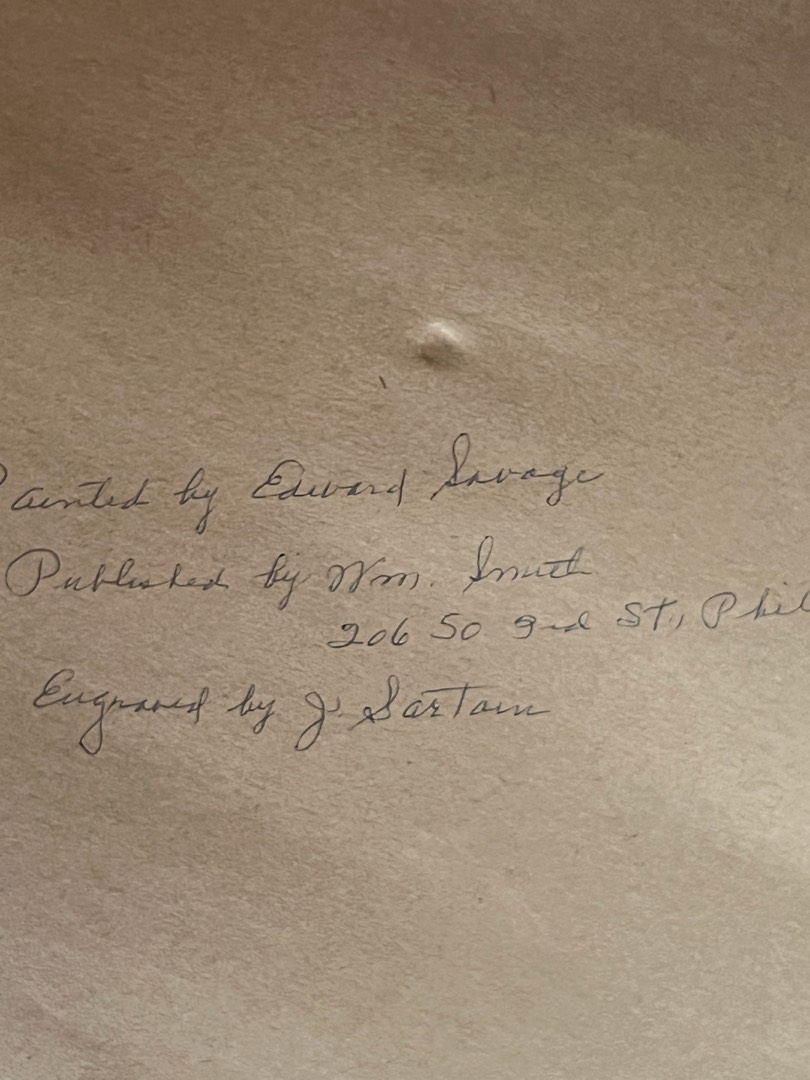 Painted by Edward Savage
Published by Wm. Smith
206 So 3rd St., Phil
Engraved by J. Sartain